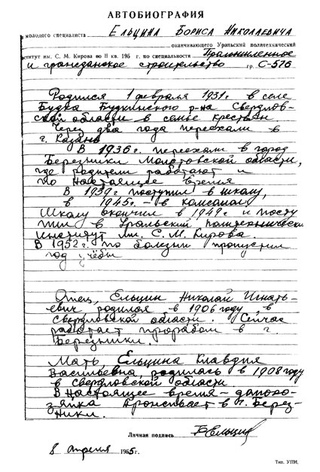 АВТОБИОГРАФИЯ
молодого специалиста Ельцина Бориса Николаевича
оканчивающего Уральский политехнический
институт им. С. М. Кирова во II кв. 195 г. по специальности Промышленное
и гражданское строительство гр. С-576
Родился 1 февраля 1931г. в селе
Будка Буткинского р-на Свердлов-
ской области в семье крестьян.
Через два года переехали в
г. Казань
В 1936г. переехали в город
Березники Молотовской области,
где родители работают и
по настоящее время
В 1939г. поступил в школу,
в 1945г. - в комсомол
Школу окончил в 1949г. и посту
пил в Уральский политехнический
институт им. С.М. Кирова.
В 1952г. по болезни пропустил
год учёбы
Отец, Ельцин Николай Игнать-
евич родился в 1906 году, в
Свердловской области. Сейчас
работает прорабом в г.
Березники.
Мать, Ельцина Клавдия
Васильевна родилась в 1908 году
в Свердловской области
В настоящее время - домохо-
зяйка. Проживает в г. Берез-
ники.
Личная подпись БЕльцин
8 апреля 1955г.
Тип. УПИ.